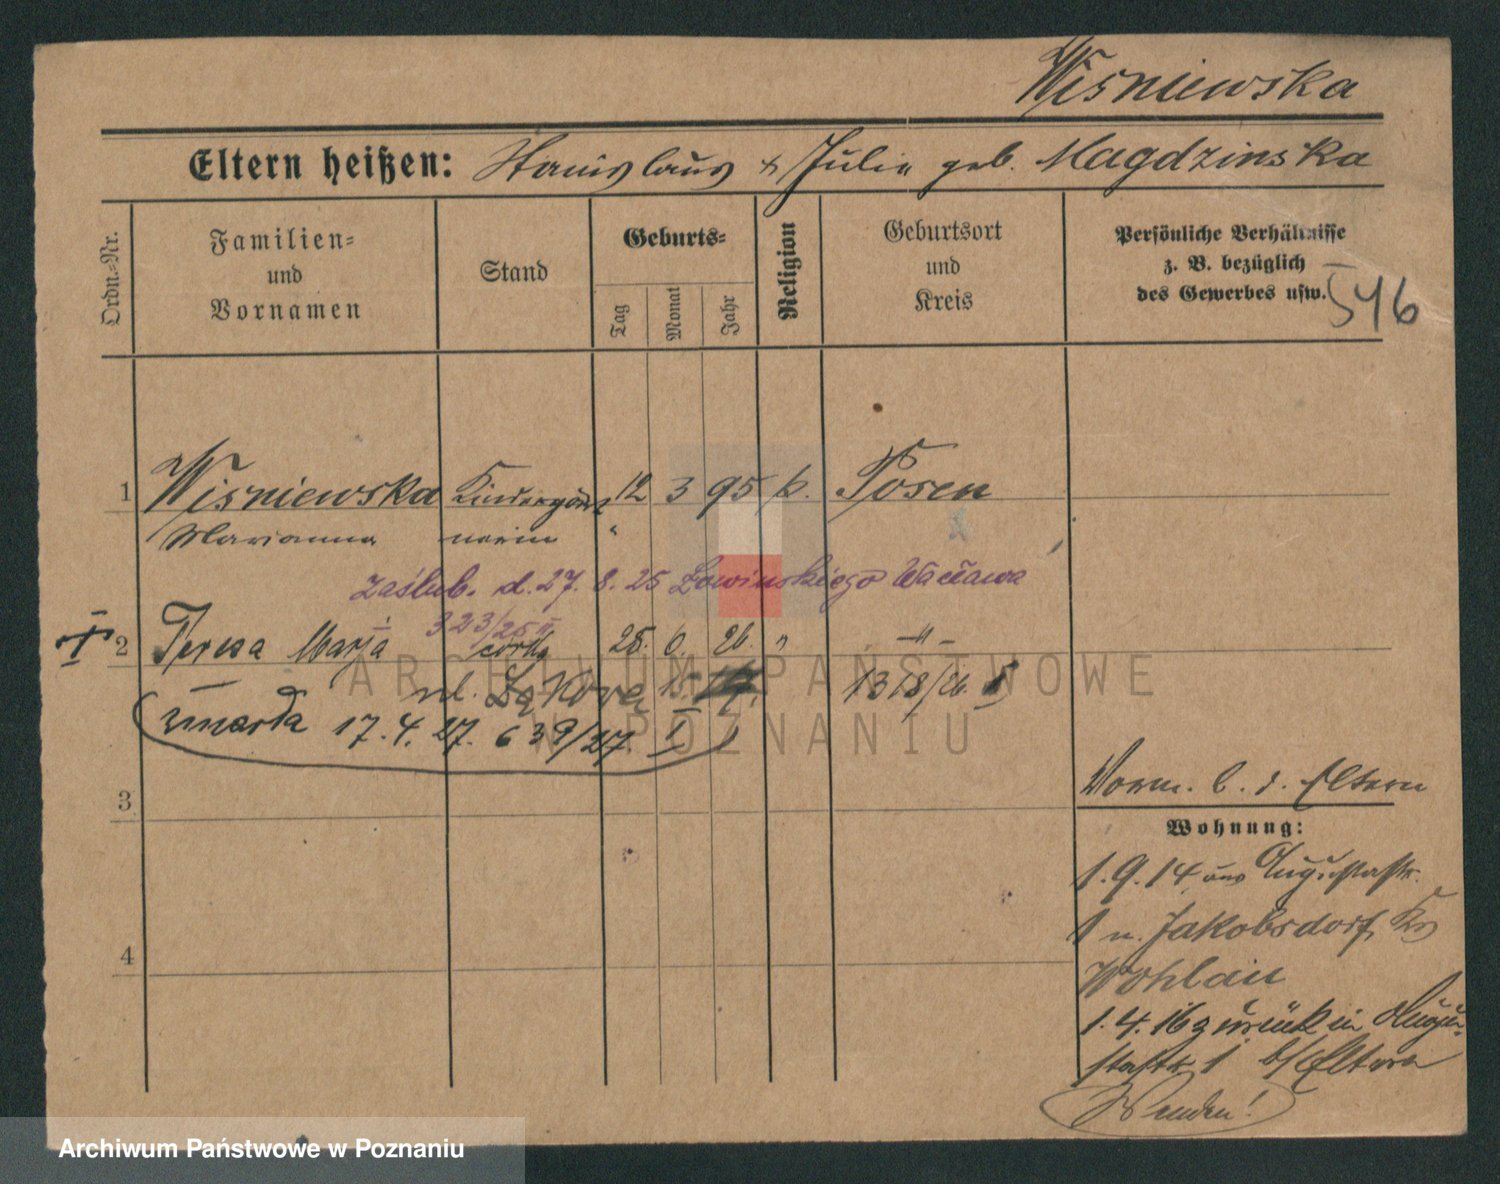 Wisniewska
Eltern heißen: Stanislaus & Julie geb. Magdzinska
Ordn.-Nr.
Familien-
und
Vornamen
Stand
Geburts-
Tag
Monat
Jahr
Religion
Geburtsort
und
Kreis
Persönliche Verhältnisse
z. B. bezüglich
des Gewerbes usw.
546
1 Wisniewska Kindergärt- 12 3 95 k. Posen
Marianna nerin "
zaślub. d. 27. 8. 25 Łowinskiego Wacława
323/25 II
I 2 Teresa Marja córka 25. 6. 26. " -"-
ul. Łąkova 1318/26. I
zmarła 17.4.27. 639/27. I
3
4
Vorm. b. d. Eltern
Wohnung:
1.9.14 aus Augustastr.
1 n. Jakobsdorf, Krs
Wohlau
1.4.16 zurück in Augu-
stastr. 1 b/Eltern
Wenden!
ARCHIWUM PAŃSTWOWE
W POZNANIU
Archiwum Państwowe w Poznaniu